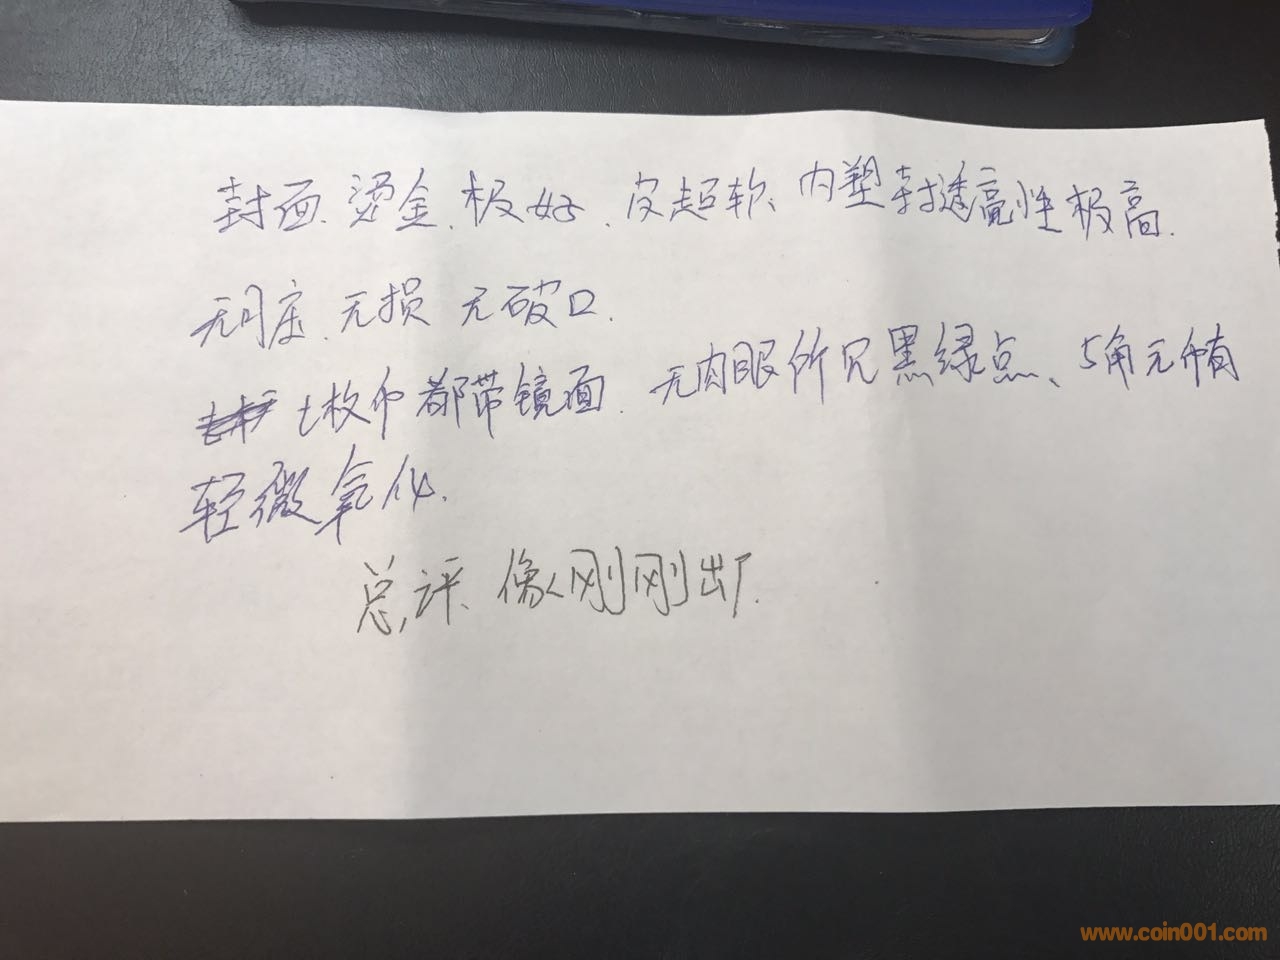 封面.烫金.极好.皮超软、内塑封透亮性极高.
无损 无破口.
七枚币都带镜面.无肉眼所见黑绿点、5角元币有
轻微氧化.
总评、像刚刚出厂.
www.coin001.com